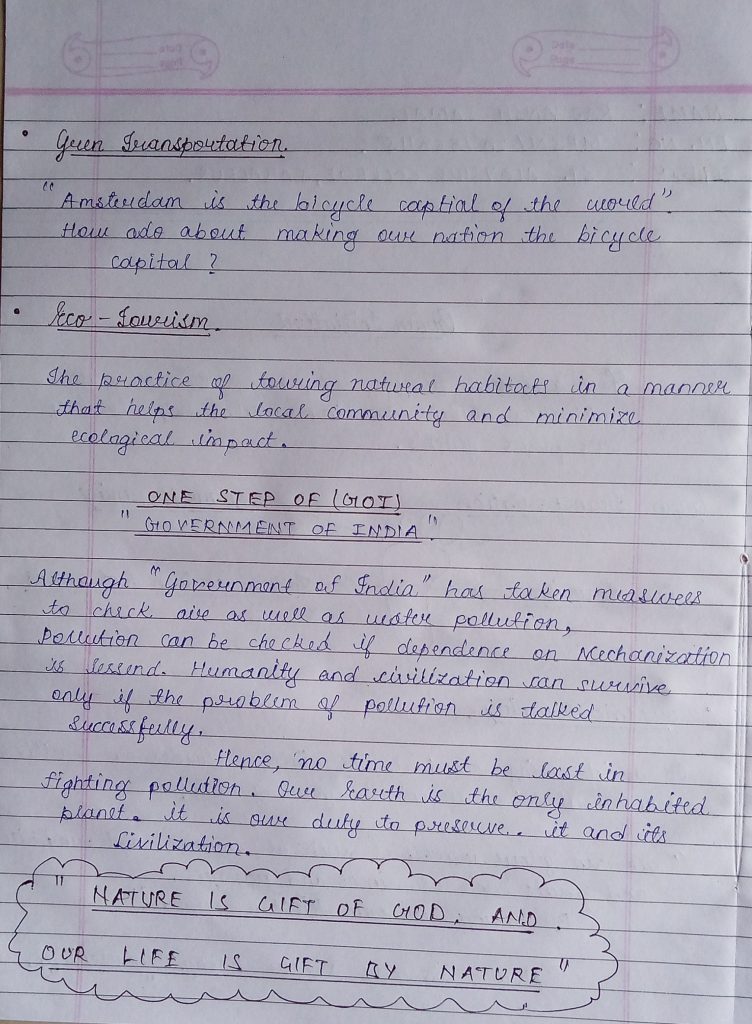 • Green Transportation.
"Amsterdam is the bicycle captial of the world".
How ado about making our nation the bicycle
capital ?
• Eco - Tourism.
The practice of touring natural habitats in a manner
that helps the local community and minimize
ecological impact.
ONE STEP OF (GOI)
"GOVERNMENT OF INDIA".
Although "Government of India" has taken measures
to check air as well as water pollution,
Pollution can be checked if dependence on Mechanization
is lessend. Humanity and civilization can survive
only if the problem of pollution is talked
Successfully.
Hence, no time must be last in
fighting pollution. Our Earth is the only inhabited
planet. it is our duty to preserve. it and its
Civilization.
"NATURE IS GIFT OF GOD, AND
OUR LIFE IS GIFT BY NATURE"